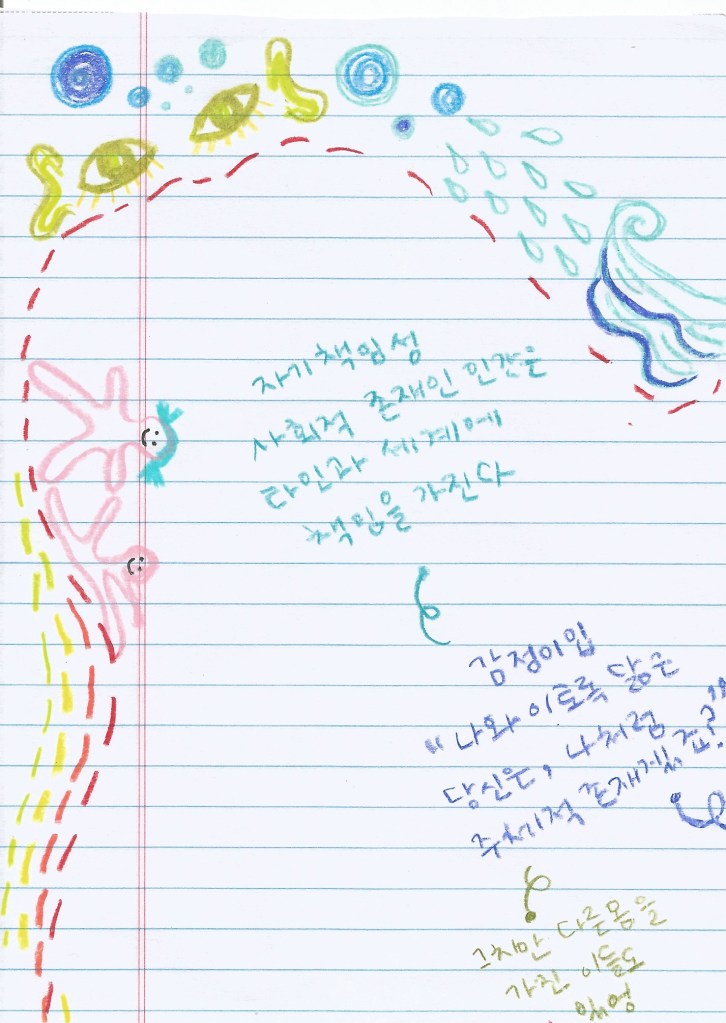 자기책임성
사회적 존재인 인간은
타인과 세계에
책임을 가진다
감정이입
"나와 이토록 닮은
당신은, 나처럼
주체적 존재겠죠?"
그치만 다른몸을
가진 이들도
있어영